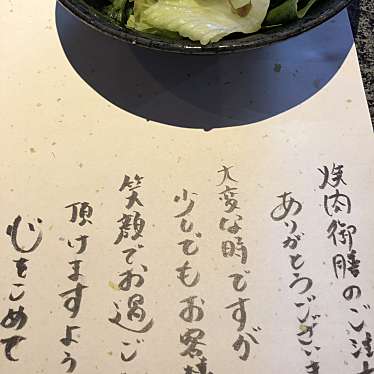 焼肉御膳のご注
ありがとうござい
大変な時ですが
少しでもお客様
笑顔でお過ご
頂けますよう
心をこめて